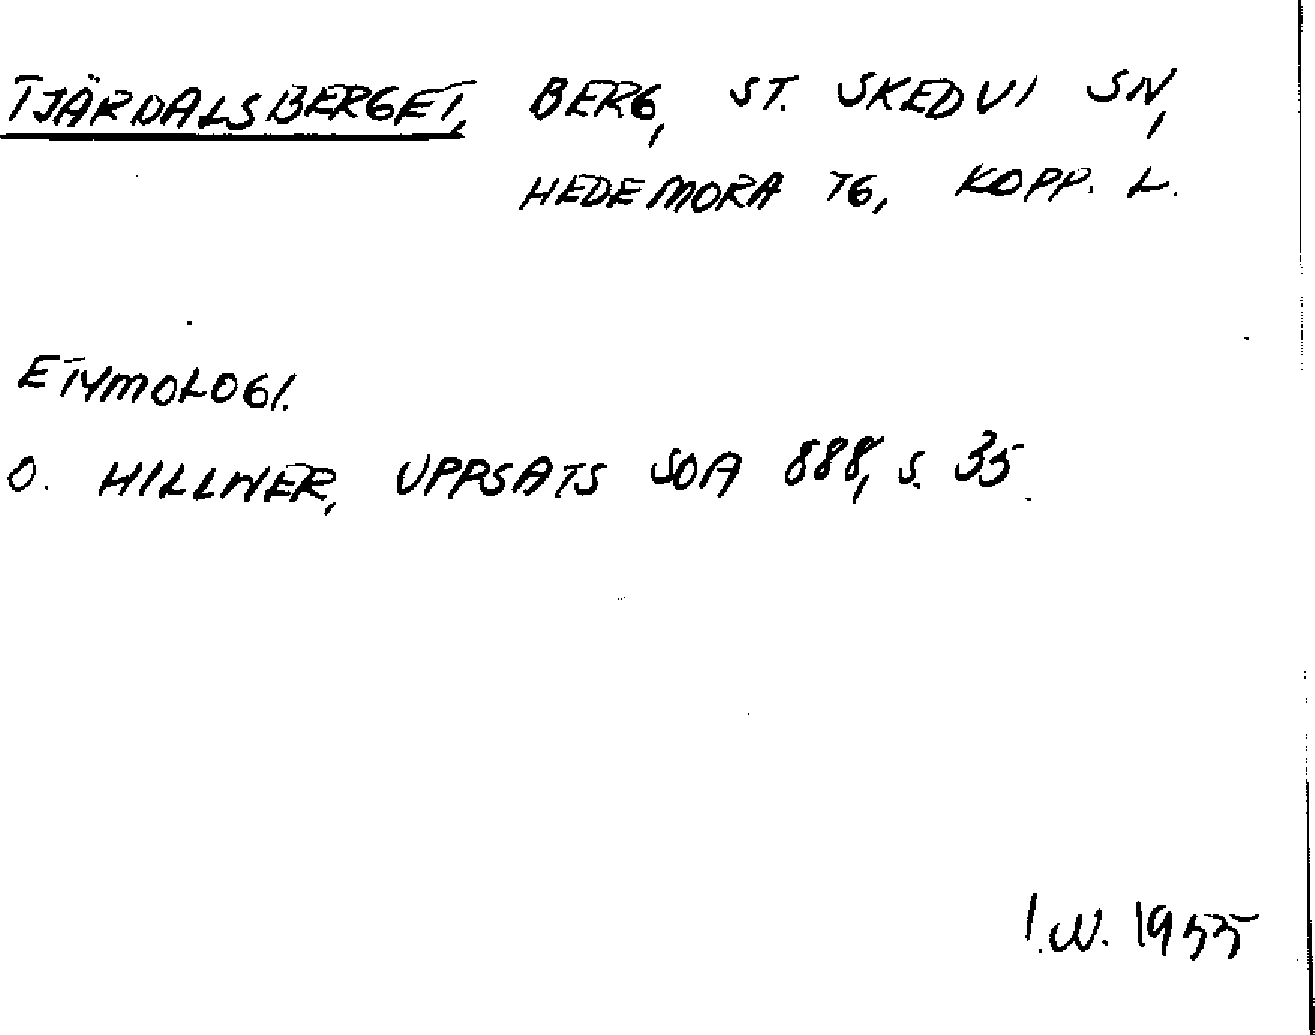 TJÄRDALSBERGET, BERG, ST. SKEDVI SN,
HEDEMORA TG, KOPP. L.
ETYMOLOGI.
O. HILLNER, UPPSATS SOA 888, S. 35.
I.W. 1955